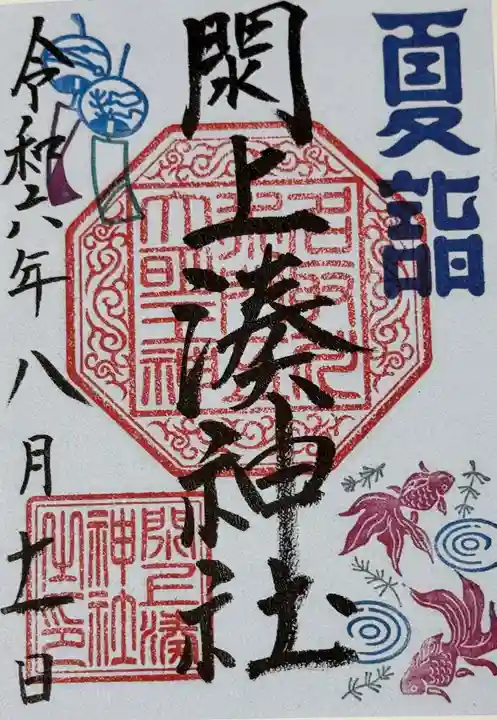 夏詣
閖上湊神社
令和六年八月十一日
閖上湊
神社
之印